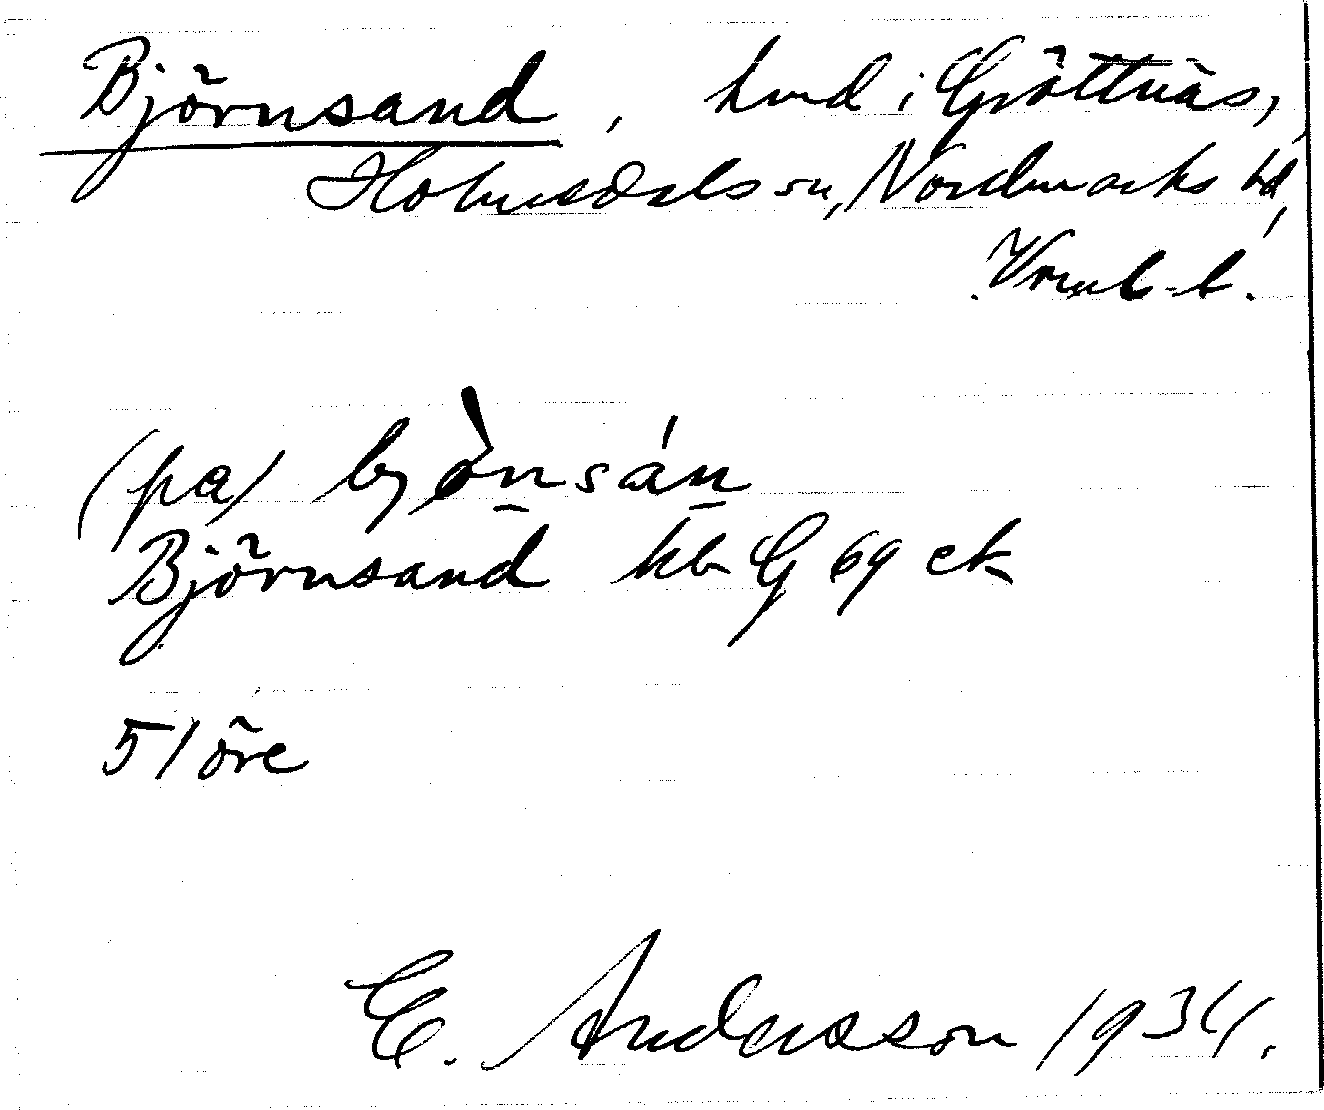 Björnsand, hmd i Gröttnäs,
Holmedals sn, Nordmarks hd,
Vrml. l.
(på) bjònsán
Björnsand kb G 69 ek
51 öre
E. Andersson 1934.